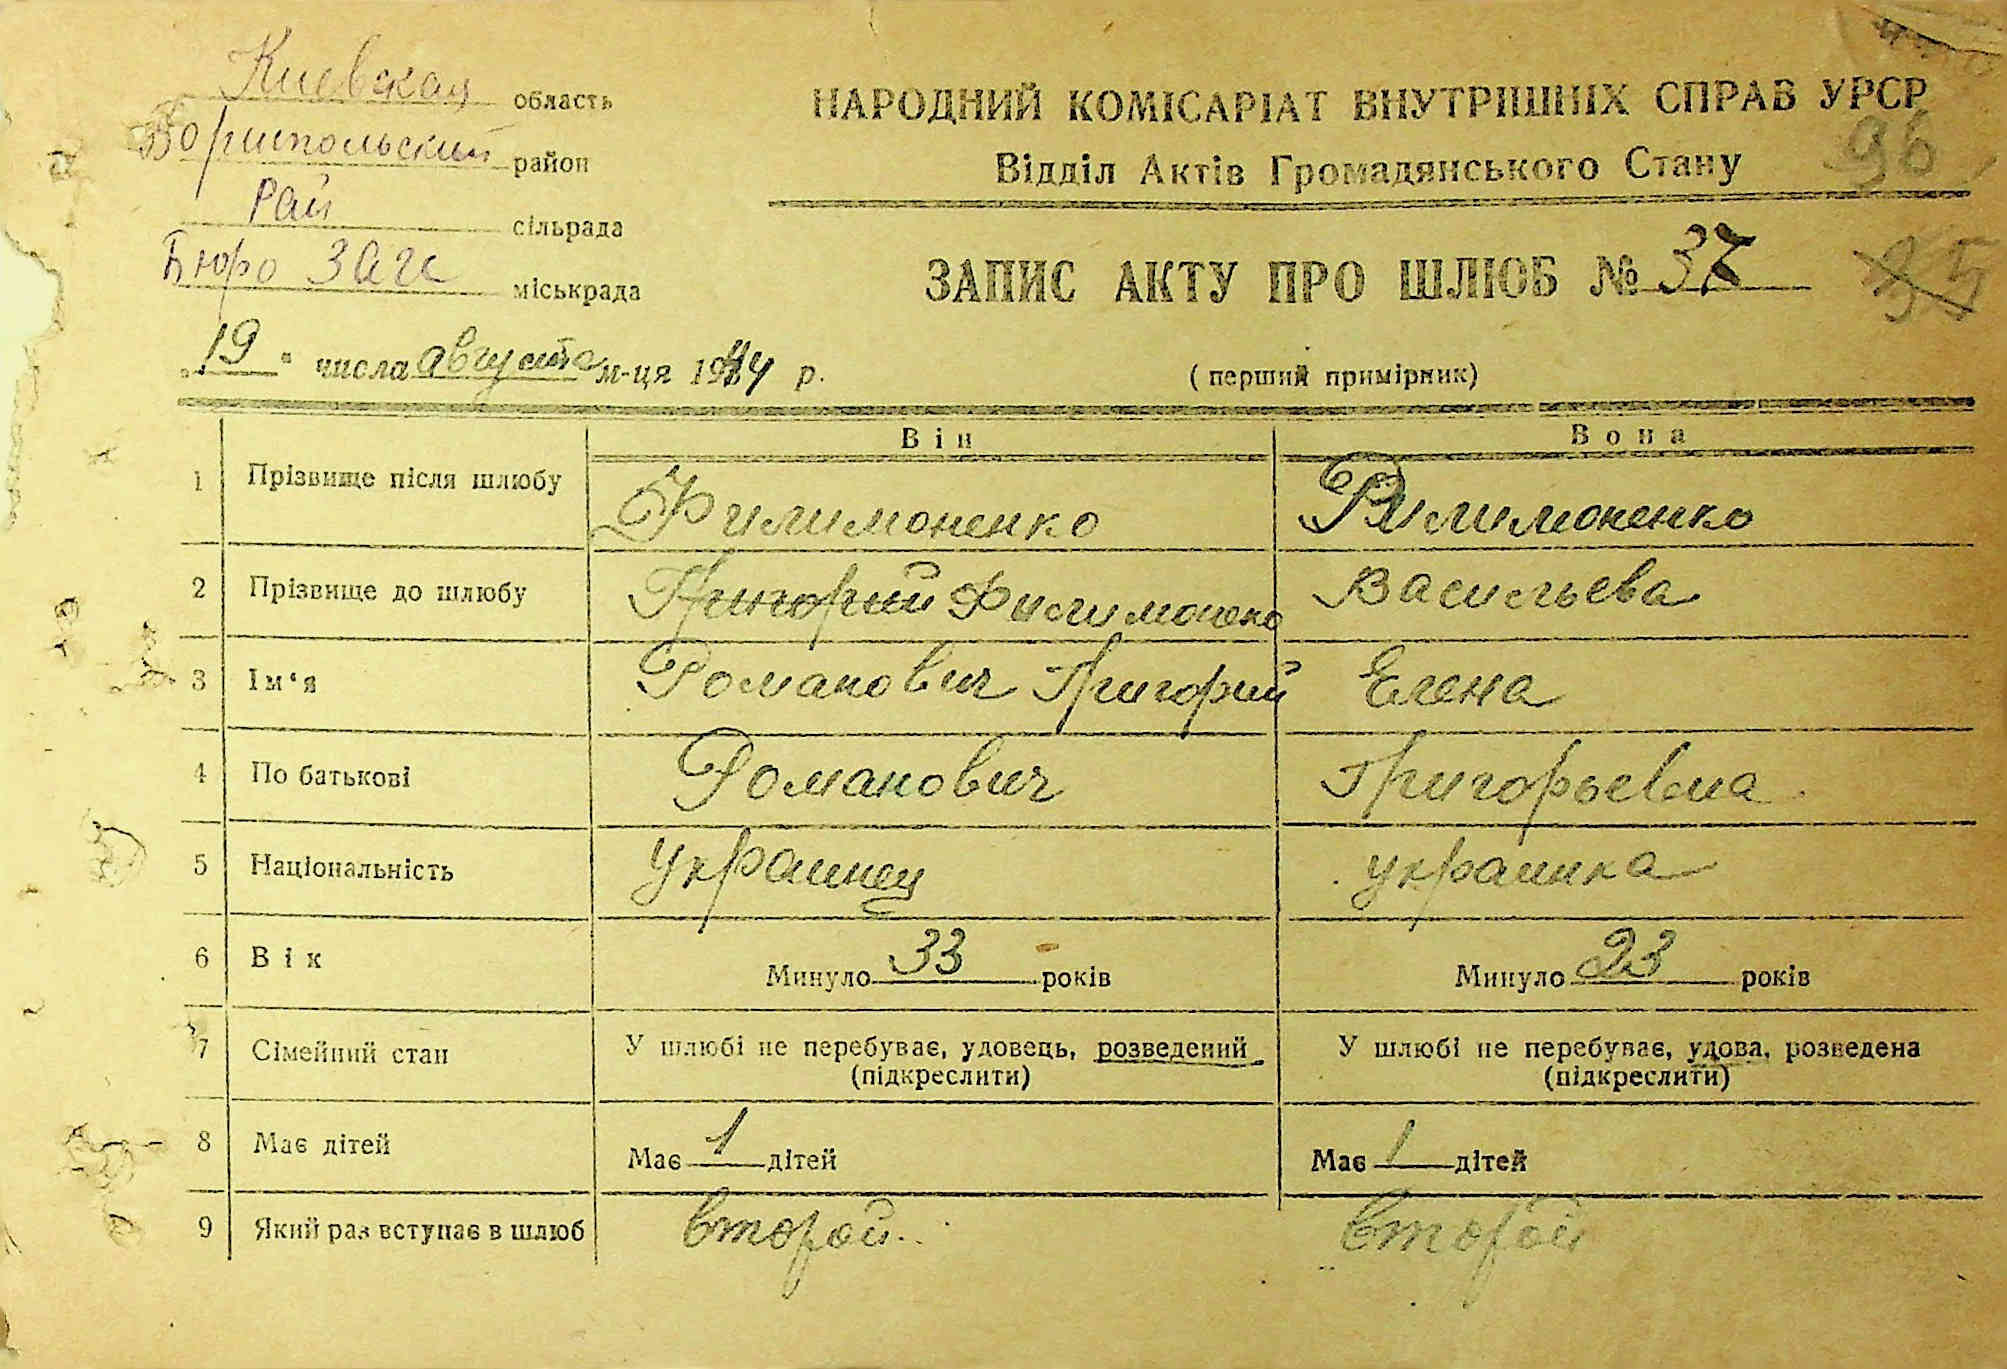 Киевская область
Бориспольский район
Рай сільрада
Бюро Загс міськрада
НАРОДНИЙ КОМІСАРІАТ ВНУТРІШНІХ СПРАВ УРСР
96
Відділ Актів Громадянського Стану
ЗАПИС АКТУ ПРО ШЛЮБ № 37
95
„19" числа августа м-ця 1944 р.
(перший примірник)
Він
Вона
1 Прізвище після шлюбу Филимоненко Филимоненко
2 Прізвище до шлюбу Григорий Филимоненко Васильева
3 Ім'я Романович Григорий Елена
4 По батькові Романович Григорьевна
5 Національність украинец украинка
6 Вік Минуло 33 років Минуло 23 років
7 Сімейний стан У шлюбі не перебуває, удовець, розведений У шлюбі не перебуває, удова, розведена
(підкреслити) (підкреслити)
8 Має дітей Має 1 дітей Має 1 дітей
9 Який раз вступає в шлюб второй второй